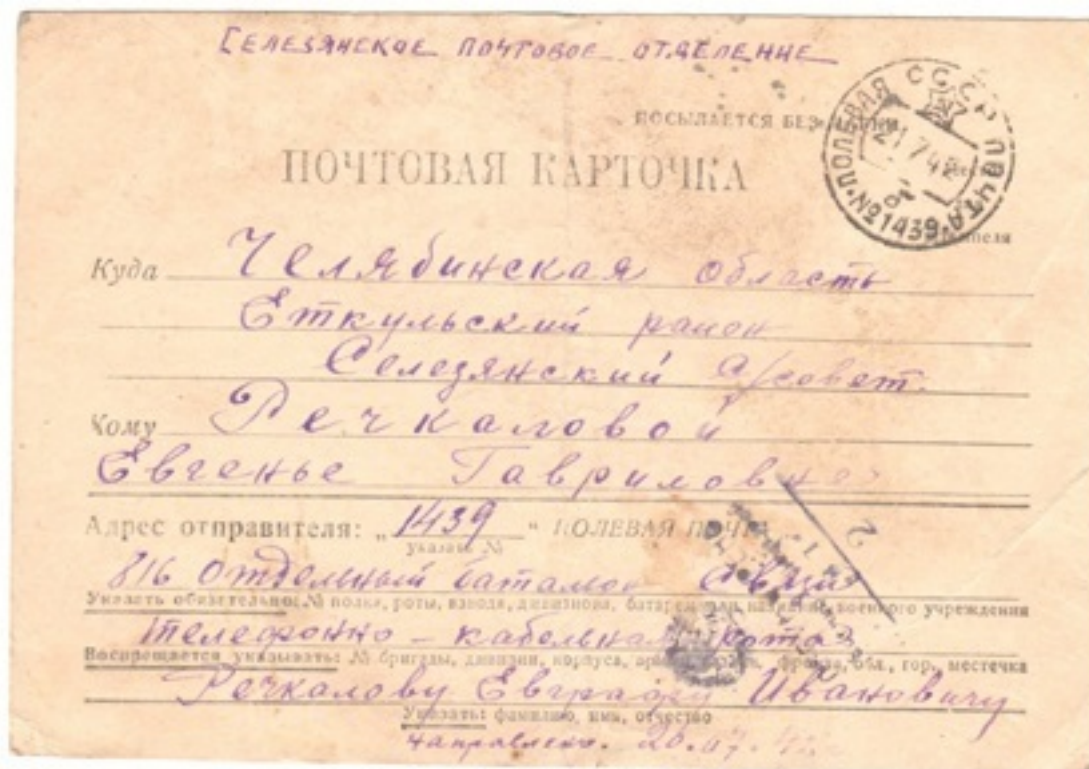 Селезянское почтовое отделение
ПОСЫЛАЕТСЯ БЕЗ
ПОЛЕВАЯ СССР ПОЧТА
21 7 42
№1439
ПОЧТОВАЯ КАРТОЧКА
Куда Челябинская область
Еткульский район
Селезянский с/совет.
Кому Речкаловой
Евгенье Гавриловне
Адрес отправителя: „1439" ПОЛЕВАЯ ПОЧТА
указать №
816 отдельный баталион связи
Указать обязательно: № полка, роты, взвода, дивизиона, батареи или название военного учреждения
телефонно-кабельная рота
Воспрещается указывать: № бригады, дивизии, корпуса, армии, фронта, обл., гор., местечка
Речкалову Евграфу Ивановичу
Указать: фамилию, имя, отчество
Направлено. 20.07.42